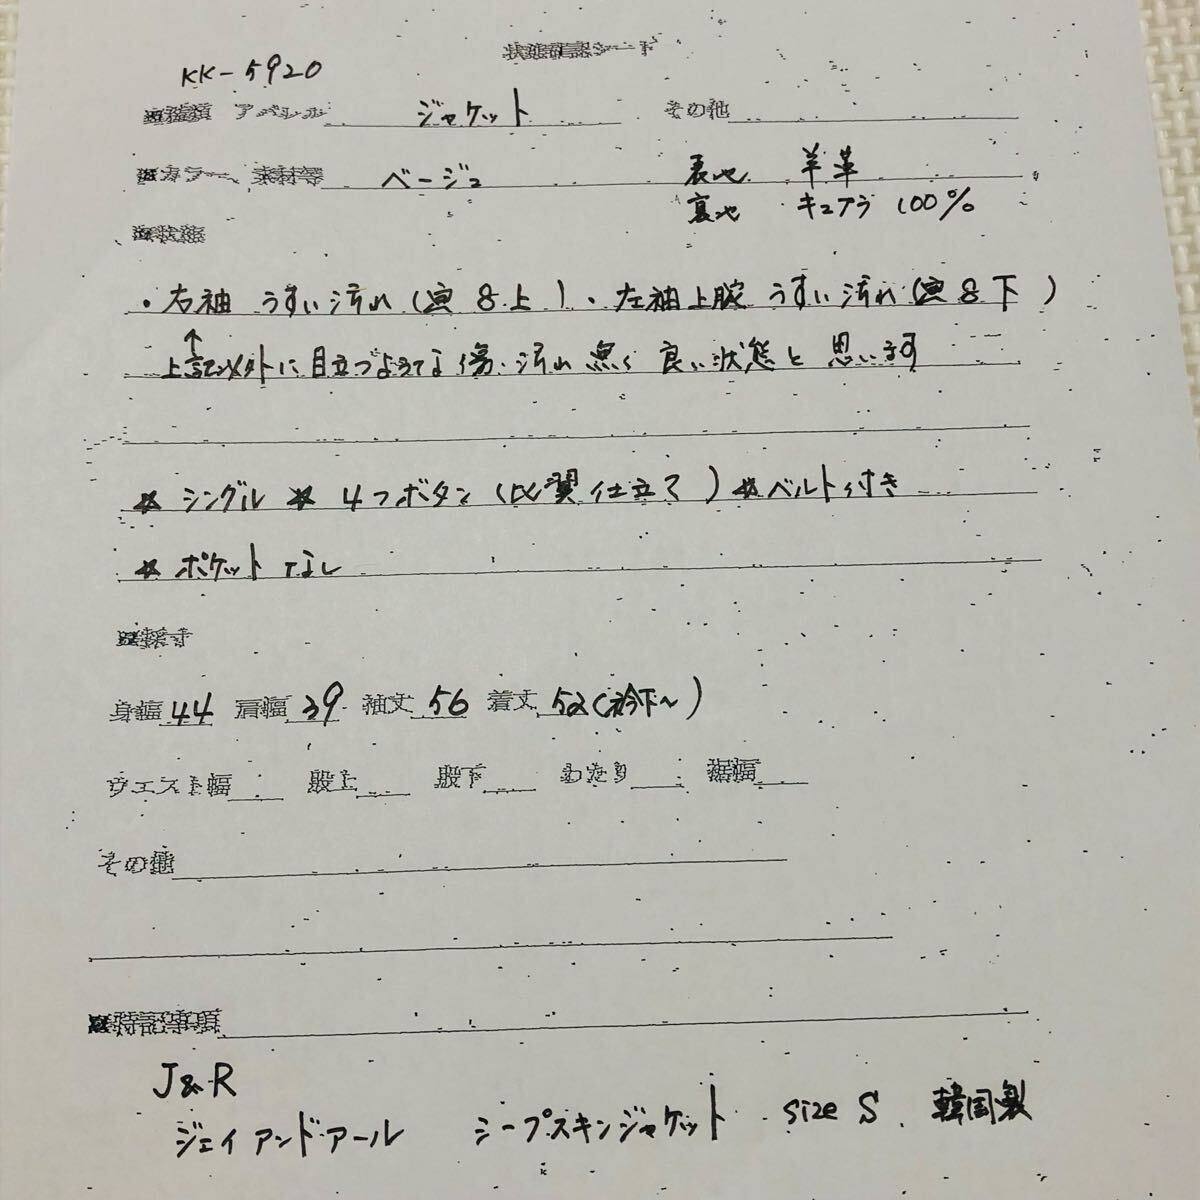 状態確認シート
KK-5920
■種類 アパレル ジャケット その他
■カラー、素材等 ベージュ 表地 羊革
裏地 キュプラ 100%
■状態
・右袖 うすい汚れ(画8上)・左袖上腕 うすい汚れ(画8下)
↑
上記以外に目立つような傷・汚れ無く良い状態と思います
★シングル ★4つボタン(比翼仕立て)★ベルト付き
★ポケットなし
■採寸
身幅44 肩幅39 袖丈56 着丈52(衿下~)
ウエスト幅 股上 股下 わたり 裾幅
その他
■特記事項
J&R
ジェイアンドアール シープスキンジャケット size S. 韓国製